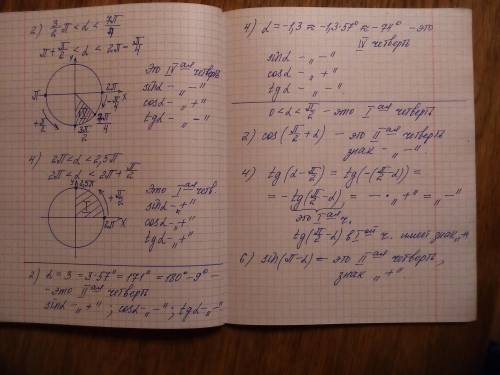 2) 3/2 π < α < 7π/4
π + π/2 < α < 2π - π/4
y
это IV ая четверть
sinα - „-"
cosα - „+"
tgα - „-"
π
2π X
-π/4
7π/4
IV
+π/2
3π/2
4) 2π < α < 2,5π
2π < α < 2π + π/2
y 2,5π
+π/2
I
2π X
Это I ая четв.
sinα - „+"
cosα - „+"
tgα - „+"
2) α = 3 = 3·57° = 171° = 180° - 9° -
- это II ая четверть
sinα - „+" ; cosα - „-" ; tgα - „-"
4) α = -1,3 ≈ -1,3·57° ≈ -74° - это
IV четверть
sinα - „-"
cosα - „+"
tgα - „-"
0 < α < π/2 - это I ая четверть
2) cos(π/2 + α) - это II ая четверть
знак - „-"
4) tg(α - π/2) = tg(-(π/2 - α)) =
= -tg(π/2 - α) = - · „+" = „-"
это I ч.
tg(π/2 - α) в I ой ч. имеет знак „+"
6) sin(π - α) - это II ая четверть,
знак „+"